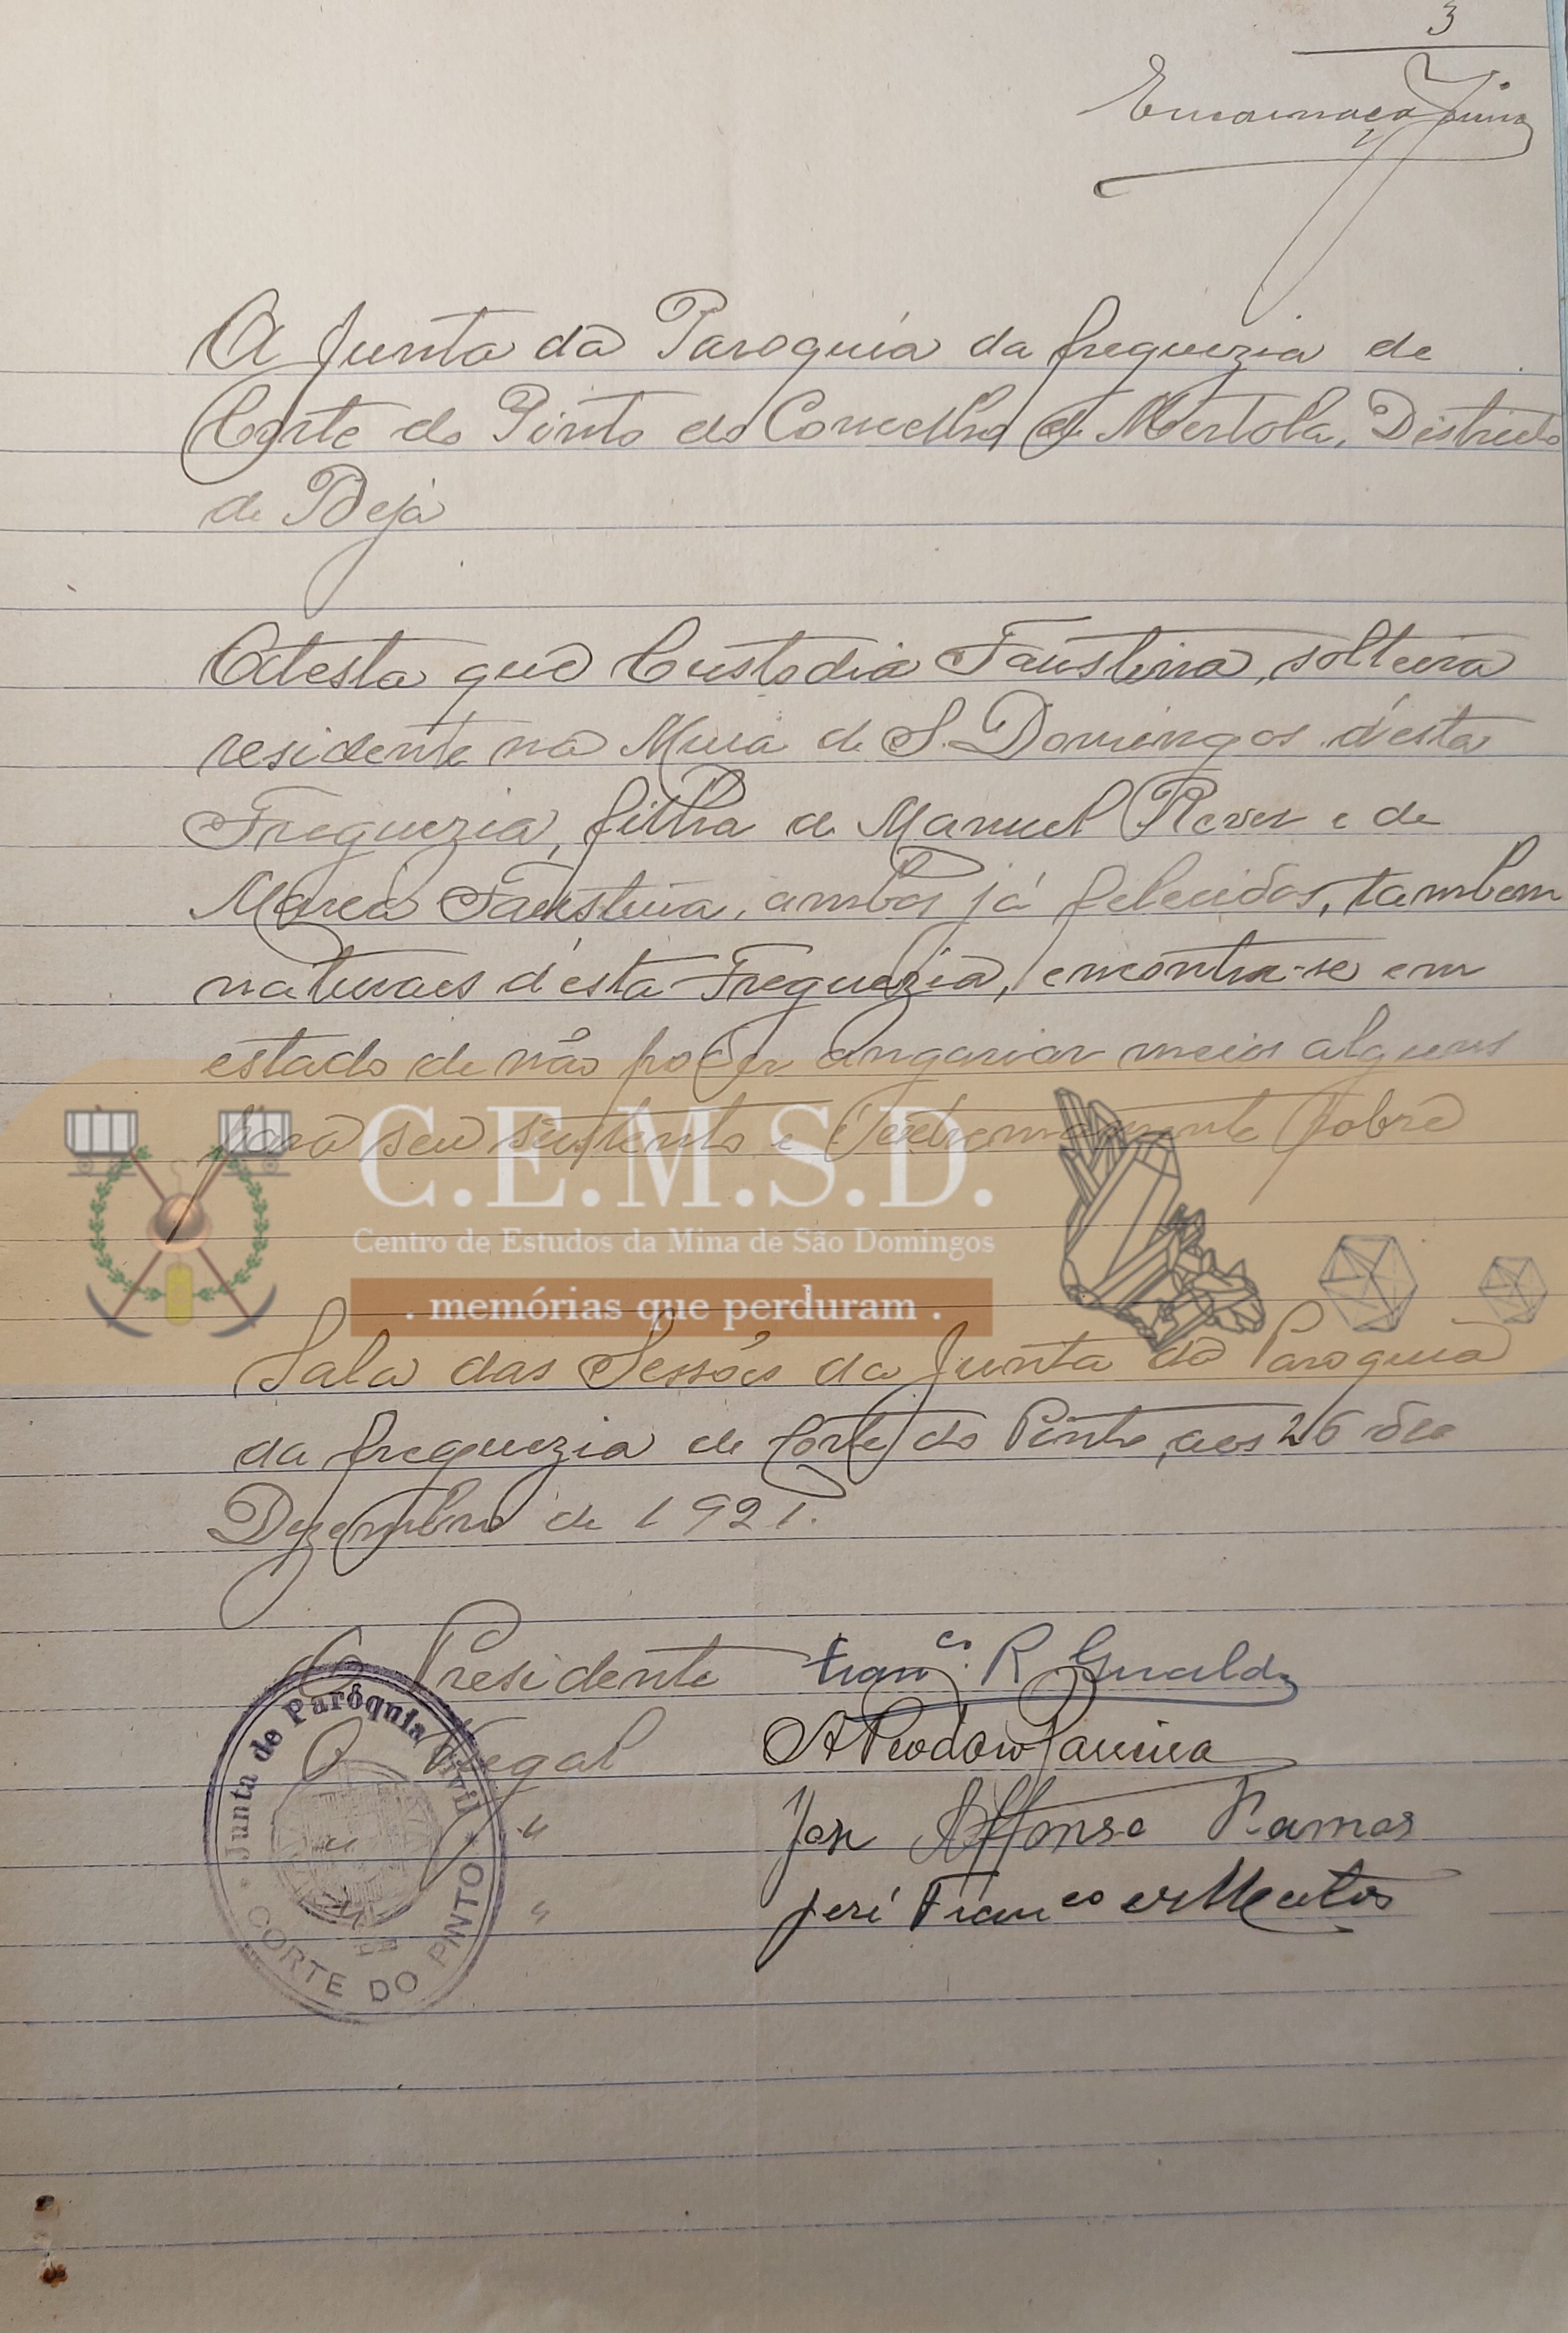 3
A Junta da Paroquia da freguezia de
Corte do Pinto do Concelho de Mertola, Districto
de Beja
Atesta que Custodia Faustina, solteira
residente na Mina de S. Domingos d'esta
Freguezia, filha de Manuel e de
Maria Faustina, ambos já felecidos, tambem
naturaes d'esta Freguezia, encontra-se em
estado de não poder angariar meios alguns
para seu sustento e extremamente pobre
C.E.M.S.D.
Centro de Estudos da Mina de São Domingos
. memórias que perduram .
Sala das Sessões da Junta da Paroquia
da freguezia de Corte do Pinto, aos 26 de
Dezembro de 1921.
O Presidente Franco. R Gualdo
O Vogal
" José Affonso Ramos
" José Franco
Junta de Parôquia Civil
CORTE DO PINTO